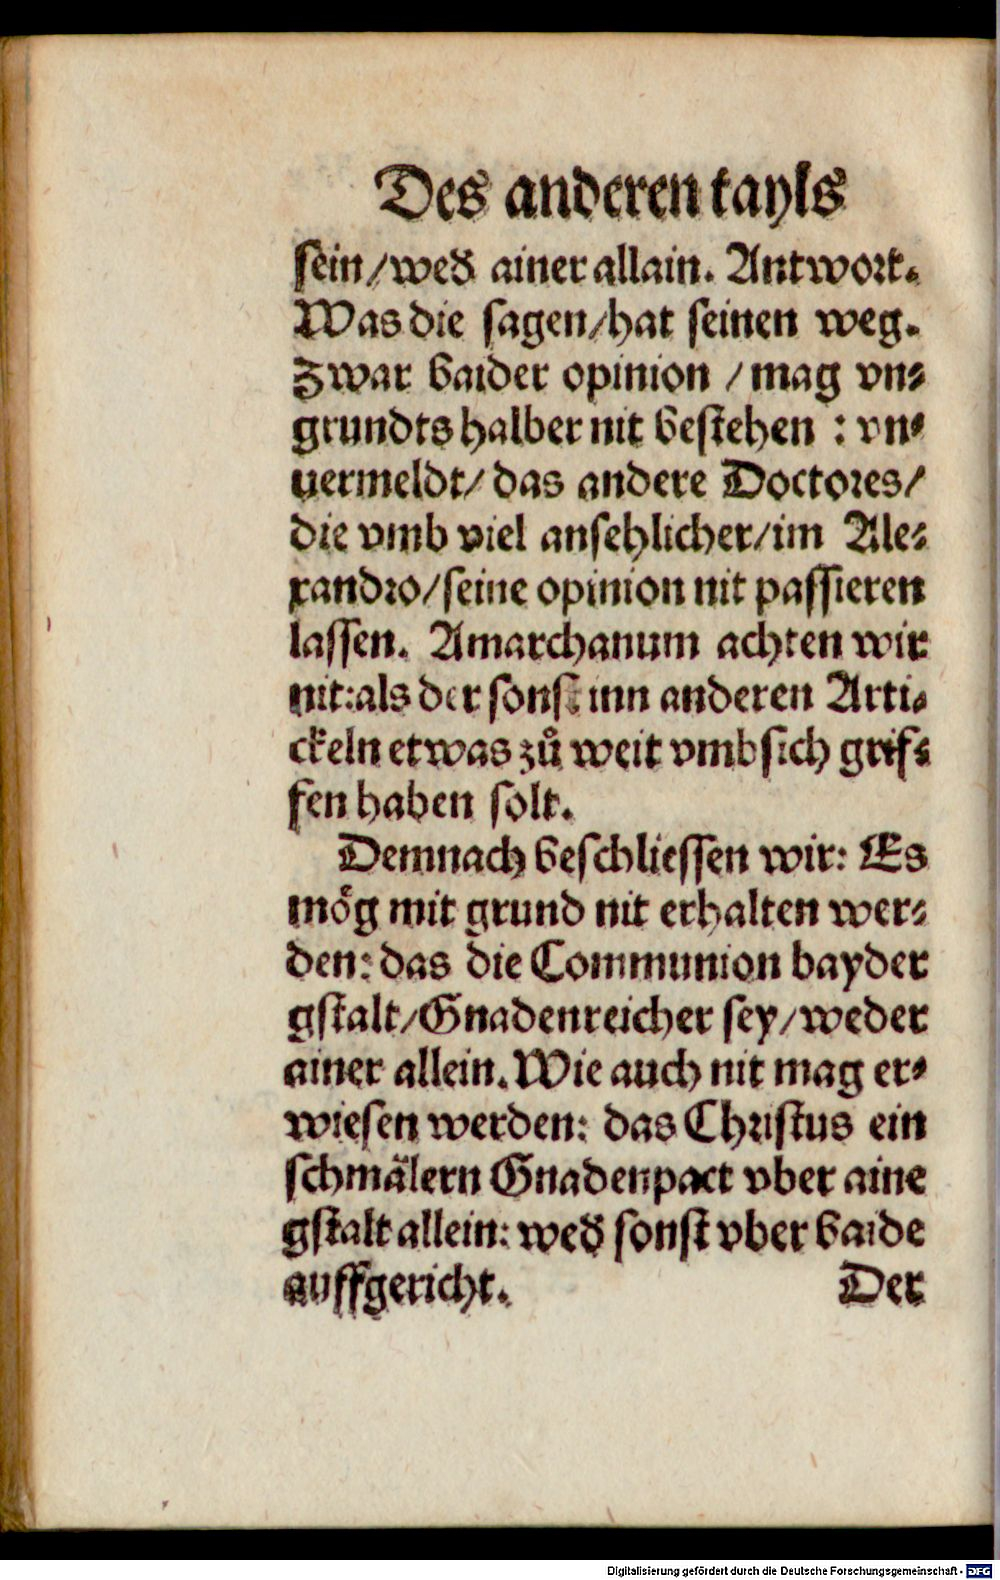 Des anderen tayls
sein/weď ainer allain. Antwort.
Was die sagen/hat seinen weg.
Zwar baider opinion / mag vn-
grundts halber nit bestehen : vn-
uermeldt/ das andere Doctores/
die vmb viel ansehlicher/im Ale-
xandro/seine opinion nit passieren
lassen. Amarchanum achten wir
nit:als der sonst inn anderen Arti-
ckeln etwas zů weit vmb sich grif-
fen haben solt.
Demnach beschliessen wir: Es
mo᷑g mit grund nit erhalten wer-
den: das die Communion bayder
gstalt/Gnadenreicher sey/weder
ainer allein. Wie auch nit mag er-
wiesen werden: das Christus ein
schmälern Gnadenpact vber aine
gstalt allein: weď sonst vber baide
auffgericht. Der
Digitalisierung gefördert durch die Deutsche Forschungsgemeinschaft - DFG